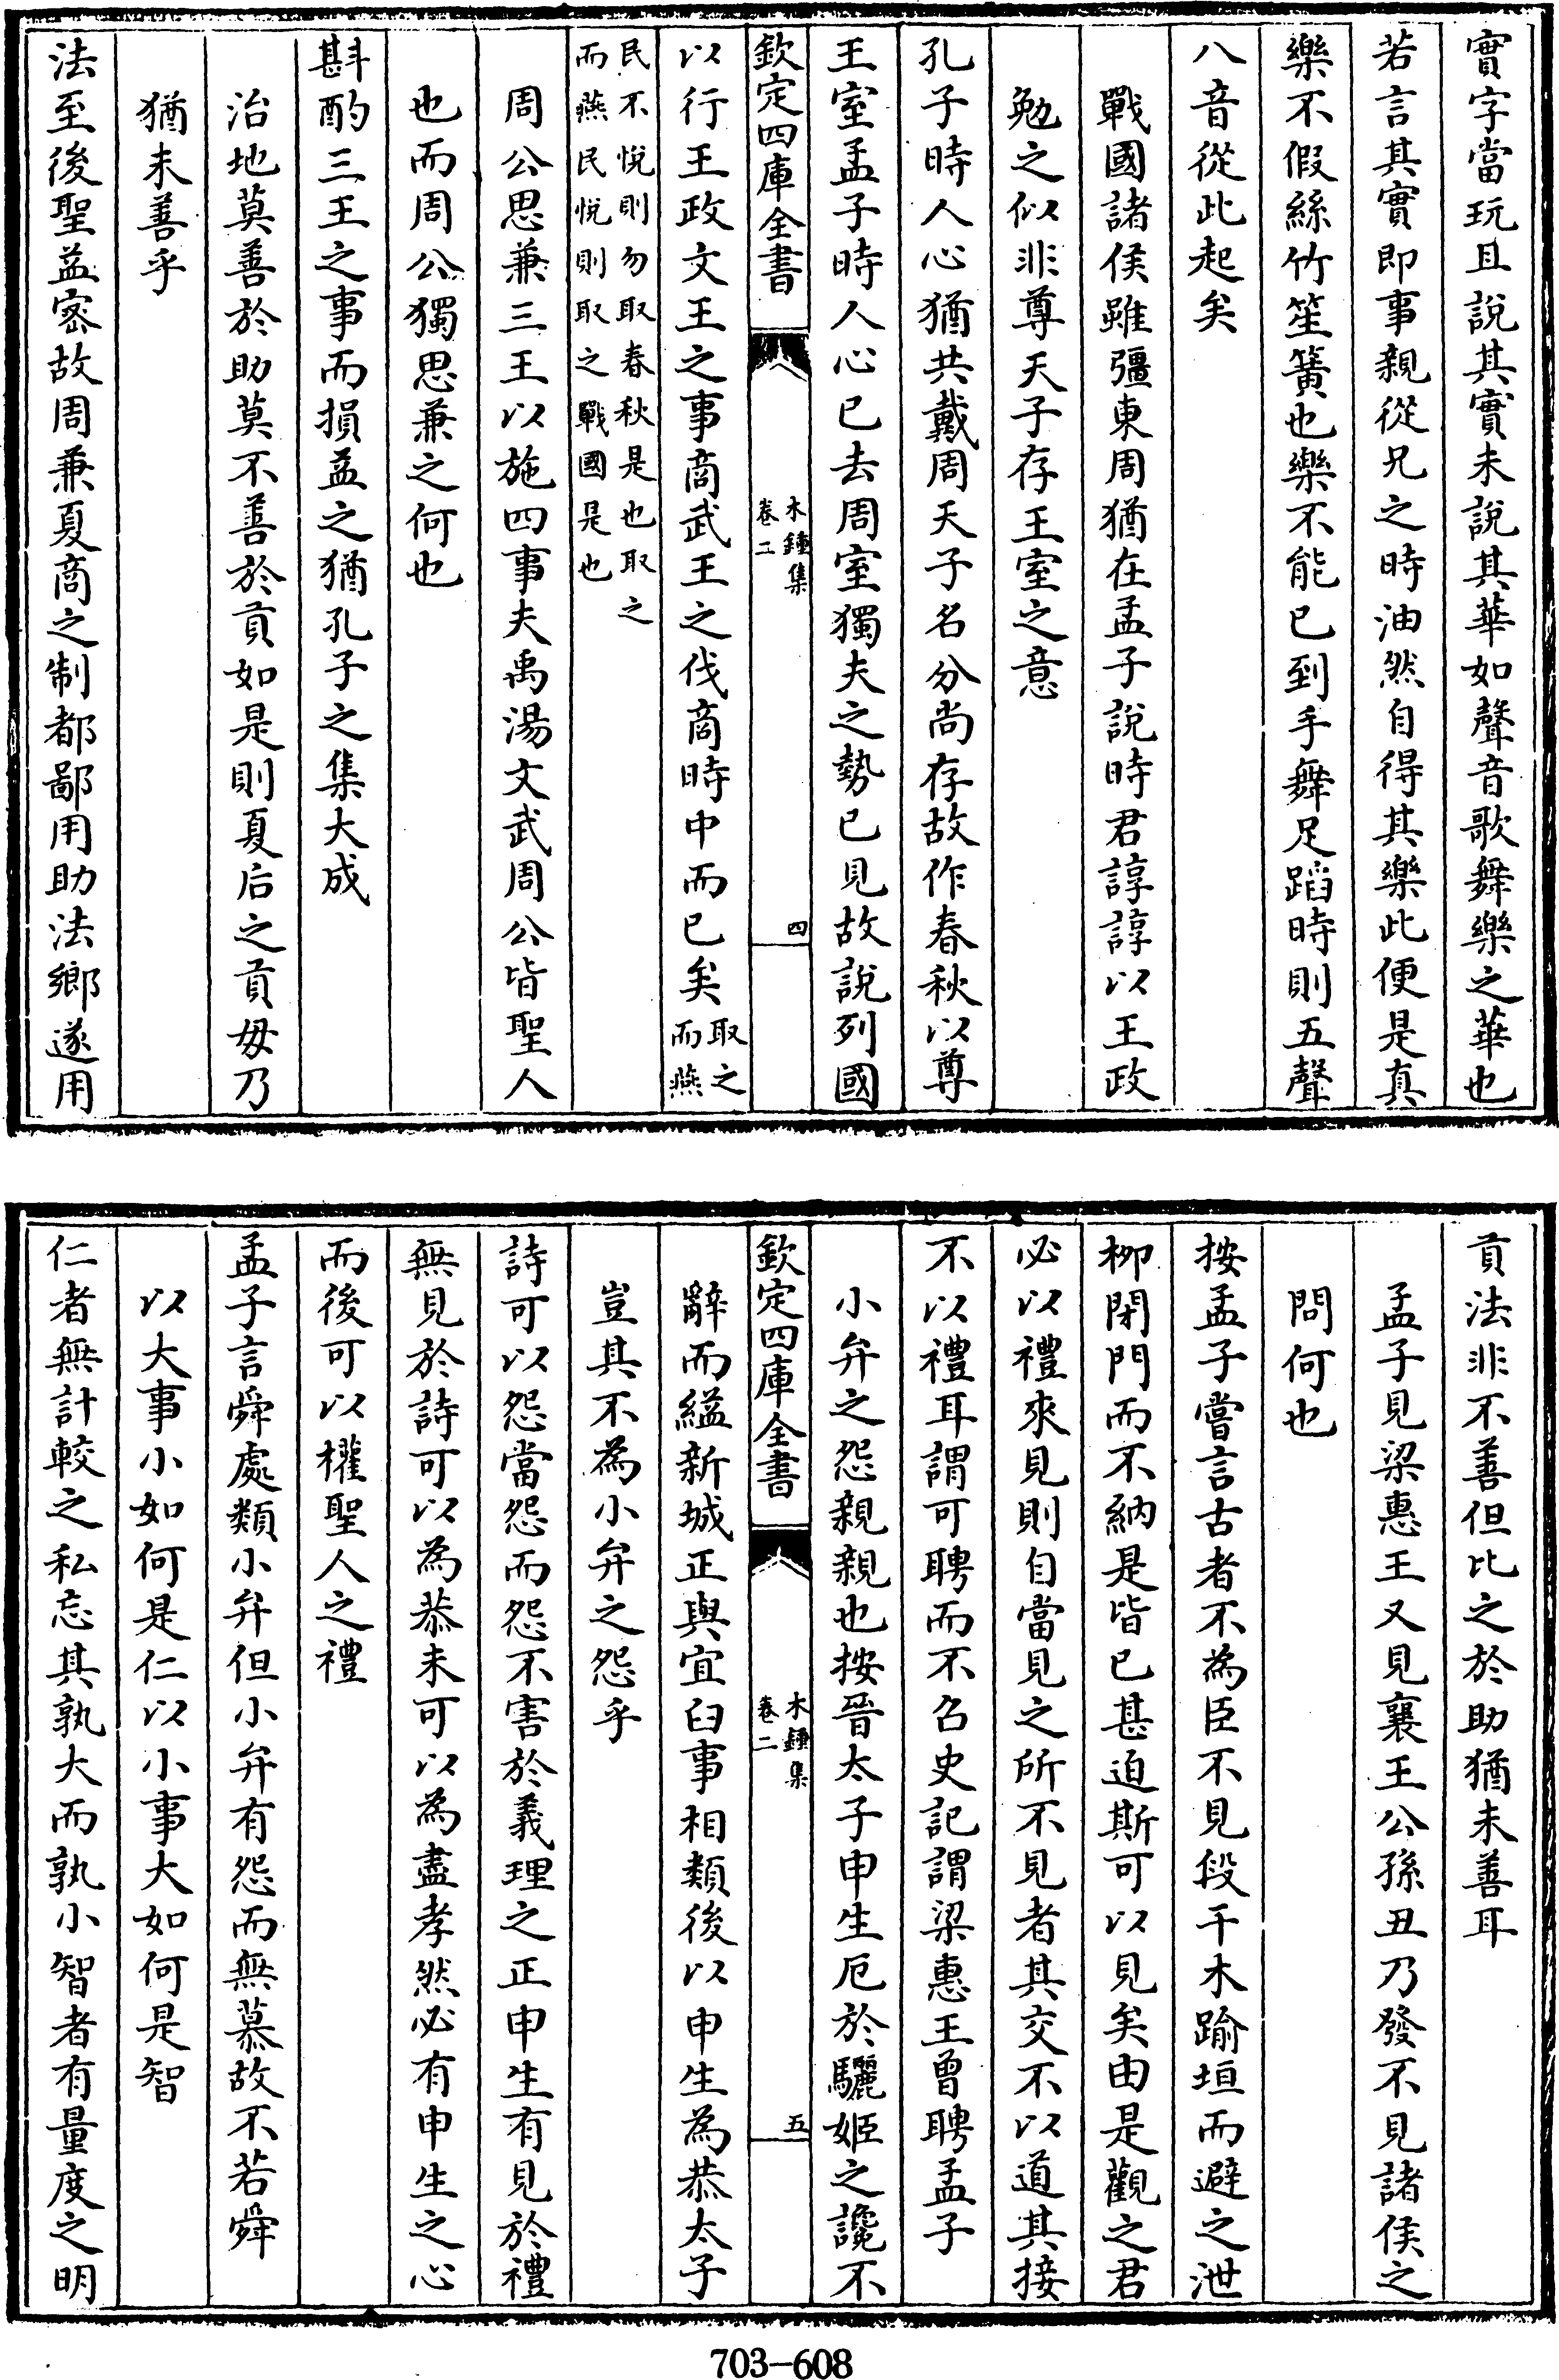 實字當玩且說其實未說其華如聲音歌舞樂之華也
若言其實即事親從兄之時油然自得其樂此便是真
樂不假絲竹笙簧也樂不能已到手舞足蹈時則五聲
八音從此起矣
戰國諸侯雖彊東周猶在孟子說時君諄諄以王政
勉之似非尊天子存王室之意
孔子時人心猶共戴周天子名分尚存故作春秋以尊
王室孟子時人心已去周室獨夫之勢已見故說列國
欽定四庫全書
木鍾集
卷二
四
以行王政文王之事商武王之伐商時中而已矣取之
而燕
民不悅則勿取春秋是也取之
而燕民悅則取之戰國是也
周公思兼三王以施四事夫禹湯文武周公皆聖人
也而周公獨思兼之何也
斟酌三王之事而損益之猶孔子之集大成
治地莫善於助莫不善於貢如是則夏后之貢毋乃
猶未善乎
法至後聖益宻故周兼夏商之制都鄙用助法鄉遂用
貢法非不善但比之於助猶未善耳
孟子見梁惠王又見襄王公孫丑乃發不見諸侯之
問何也
按孟子嘗言古者不為臣不見段干木踰垣而避之泄
柳閉門而不納是皆已甚迫斯可以見矣由是觀之君
必以禮來見則自當見之所不見者其交不以道其接
不以禮耳謂可聘而不召史記謂梁惠王曾聘孟子
小弁之怨親親也按晉太子申生厄於驪姬之讒不
欽定四庫全書
木鍾集
卷二
五
辭而縊新城正與宜臼事相類後以申生為恭太子
豈其不為小弁之怨乎
詩可以怨當怨而怨不害於義理之正申生有見於禮
無見於詩可以為恭未可以為盡孝然必有申生之心
而後可以權聖人之禮
孟子言舜處類小弁但小弁有怨而無慕故不若舜
以大事小如何是仁以小事大如何是智
仁者無計較之私忘其孰大而孰小智者有量度之明
703-608